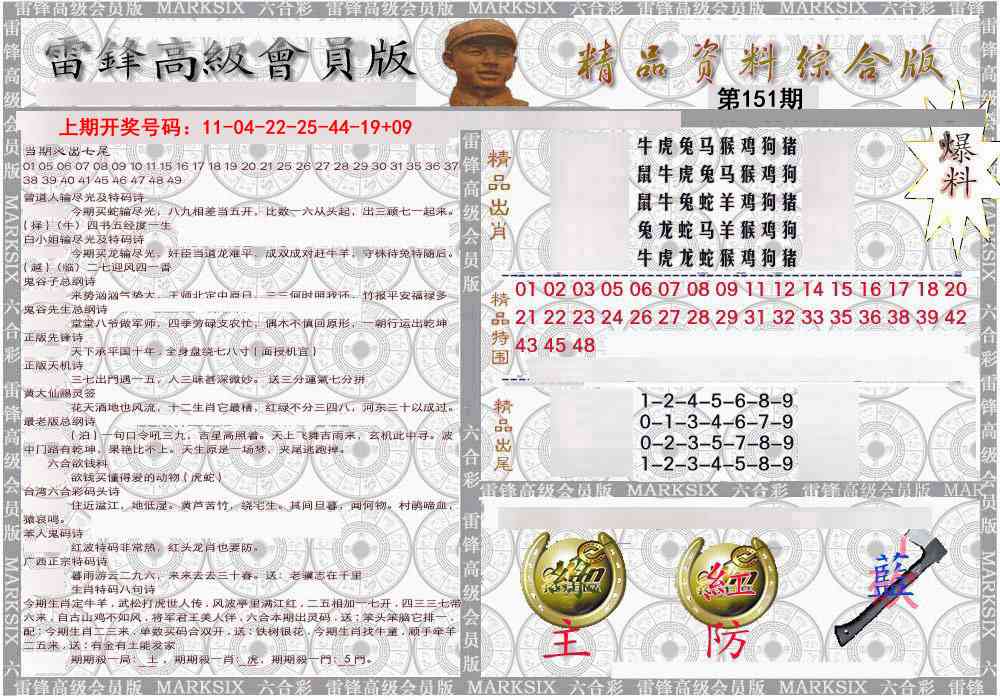 雷鋒高級會員版
精品资料综合版
第151期
上期开奖号码：11-04-22-25-44-19+09
爆料
01 05 06 07 08 09 10 11 15 16 17 18 19 20 21 25 26 27 28 29 30 31 35 36 37
38 39 40 41 45 46 47 48 49
曾道人输尽光及特码诗
今期买蛇输尽光，八九相差当五开，比数一六从头起，出三顾七一起来。
(择)(午)四书五经度一生
白小姐输尽光及特码诗
今期买龙输尽光，奸臣当道龙难平，成双成对赶牛羊，守株待兔特随后。
(越)(临)二七迎风四一香
鬼谷子总纲诗
鬼谷先生总纲诗
堂堂八爷做军师，四季劳碌支农忙，偶木不慎回原形，一朝行运出乾坤
正版先锋诗
天下承平国十年，全身盘绕七八寸(面授机宜)
正版天机诗
三七出門遇一五，人三味甚深微妙。送三分運氣七分拼
黄大仙赐灵签
花天酒地也风流，十二生肖它最糟，红绿不分三四八，河东三十以成过。
最老版总纲诗
(泊)一句口令吼三九，吉星高照着。天上飞舞吉雨来，玄机此中寻。波
中门路有乾坤，果艳比不上。天生原是一场梦，夹尾逃跑掉。
六合欲钱料
欲钱买懂得爱的动物(虎蛇)
台湾六合彩码头诗
住近湓江，地低湿。黄芦苦竹，绕宅生。其间旦暮，闻何物。杜鹃啼血，
猿哀鳴。
本人鬼码诗
红波特码非常热，红头龙肖也要防。
广西正宗特码诗
暮雨游云二九六，来来去去三十春。送：老骥志在千里
生肖特码八句诗
今期生肖定牛羊，武松打虎世人传，风波亭里满江红，二五相加一七开，四三三七带
六来，自古山鸡不如风，将军君王美人伴，六合本期出灵码，送：笨头笨脑它排一，
配：今期生肖二三来，单数买码合双开，送：铁树银花，今期生肖找牛童，顺手牵羊
二五来，送：有金有土能发家
期期殺一局：土，期期殺一肖：虎，期期殺一門：5門。
精品出肖
牛虎兔马猴鸡狗猪
鼠牛虎兔马猴鸡狗
鼠牛兔蛇羊鸡狗猪
兔龙蛇马羊猴鸡狗
牛虎龙蛇猴鸡狗猪
精品特围
01 02 03 05 06 07 08 09 11 12 14 15 16 17 18 20
21 22 23 24 26 27 28 29 31 32 33 35 36 38 39 42
43 45 48
精品出尾
1-2-4-5-6-8-9
0-1-3-4-6-7-9
0-2-3-5-7-8-9
1-2-3-4-5-8-9
主
紅
防
藍
雷锋高级会员版 MARKSIX 六合彩